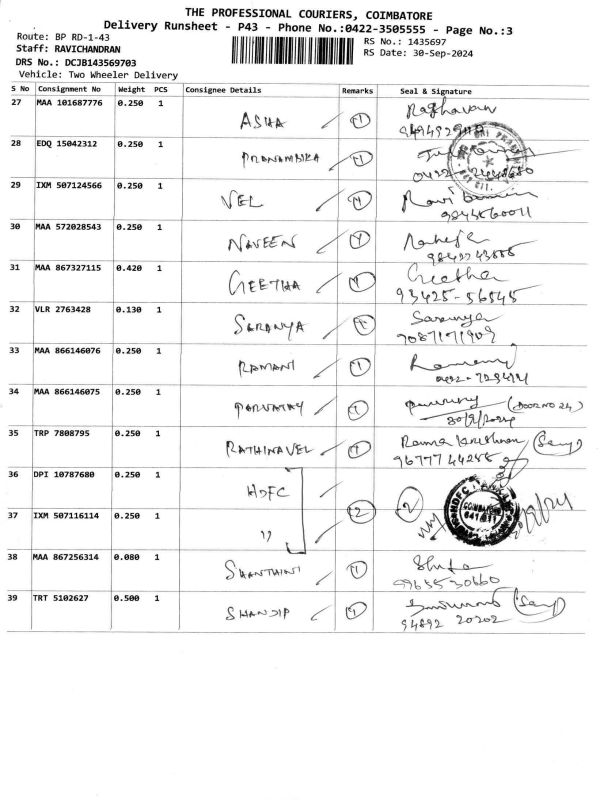 THE PROFESSIONAL COURIERS, COIMBATORE
Delivery Runsheet - P43 - Phone No.:0422-3505555 - Page No.:3
Route: BP RD-1-43
RS No.: 1435697
Staff: RAVICHANDRAN
RS Date: 30-Sep-2024
DRS No.: DCJB143569703
Vehicle: Two Wheeler Delivery
S No Consignment No Weight PCS Consignee Details Remarks Seal & Signature
27 MAA 101687776 0.250 1 ASHA Raghavan
28 EDQ 15042312 0.250 1 PRANAMBIKA
29 IXM 507124566 0.250 1 VEL
9843560011
30 MAA 572028543 0.250 1 NAVEEN
31 MAA 867327115 0.420 1 GEETHA Geetha
93425-56545
32 VLR 2763428 0.130 1 SARANYA Saranya
7087171909
33 MAA 866146076 0.250 1 RAMANI
34 MAA 866146075 0.250 1 PARVATHY (DOOR NO 24)
30/9/2024
35 TRP 7808795 0.250 1 RATHINAVEL Rama Krishnan
96777 44288
36 DPI 10787680 0.250 1 HDFC 2
37 IXM 507116114 0.250 1 " 2
38 MAA 867256314 0.080 1 SHANTHINI
99655 30660
39 TRT 5102627 0.500 1 SHANDIP
94892 20202